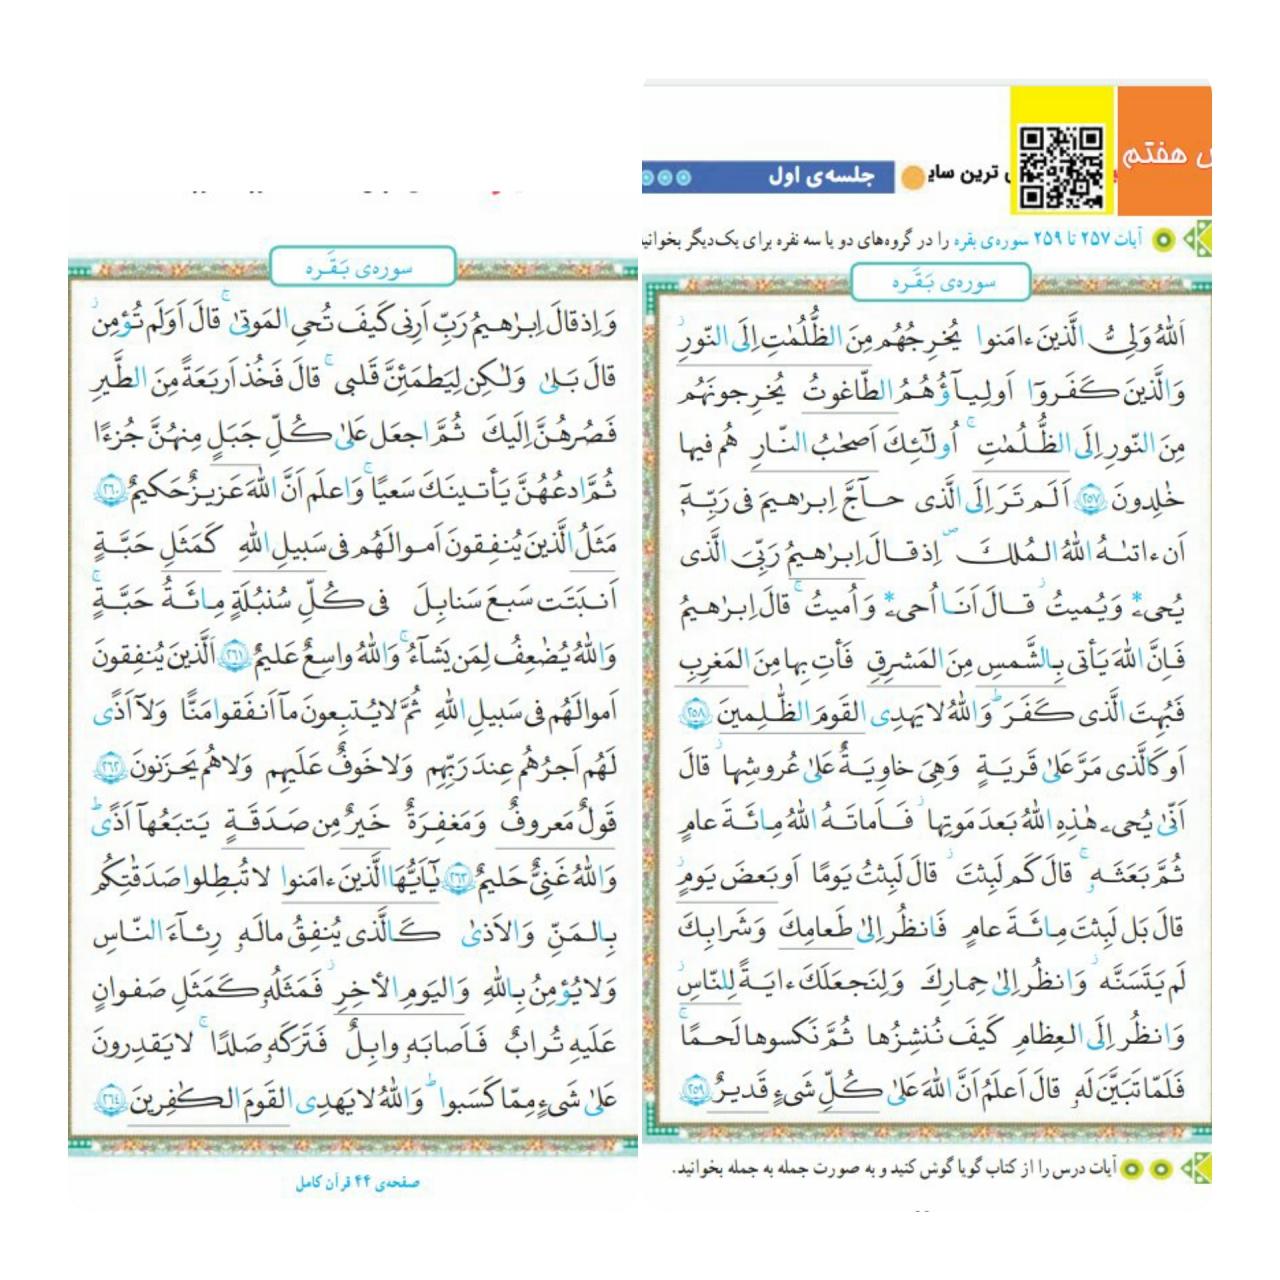 س هفتم
ترین سای
جلسه‌ی اول
آیات ۲۵۷ تا ۲۵۹ سوره‌ی بقره را در گروه‌های دو یا سه نفره برای یک‌دیگر بخوانی
سوره‌ی بَقَره
اَللّٰهُ وَلِیُّ الَّذینَ ءامَنوا یُخرِجُهُم مِنَ الظُّلُمٰتِ اِلَی النّورِ ۖ
وَالَّذینَ کَفَروٓا اَولِیـآؤُهُمُ الطّاغوتُ یُخرِجونَهُم
مِنَ النّورِ اِلَی الظُّلُمٰتِ ۗ اُولٰـئِکَ اَصحٰبُ النّـارِ هُم فیها
خٰلِدونَ ﴿۲۵۷﴾ اَلَم تَرَ اِلَی الَّذی حـآجَّ اِبرٰهیمَ فی رَبِّهٓ
اَن ءاتىٰهُ اللّٰهُ المُلكَ ۘ اِذ قـالَ اِبرٰهیمُ رَبِّیَ الَّذی
یُحیۦ* وَیُمیتُ ۙ قـالَ اَنَـا اُحیۦ* وَاُمیتُ ۖ قالَ اِبرٰهیمُ
فَاِنَّ اللّٰهَ یَأتی بِالشَّمسِ مِنَ المَشرِقِ فَأتِ بِها مِنَ المَغرِبِ
فَبُهِتَ الَّذی کَفَرَ ۗ وَاللّٰهُ لا یَهدِی القَومَ الظّٰلِمینَ ﴿۲۵۸﴾
اَو کَالَّذی مَرَّ عَلىٰ قَریَةٍ وَهِیَ خاوِیَـةٌ عَلىٰ عُروشِها ۙ قالَ
اَنّىٰ یُحیۦ هٰذِهِ اللّٰهُ بَعدَ مَوتِها ۖ فَـاَماتَـهُ اللّٰهُ مِائَـةَ عامٍ
ثُمَّ بَعَثَـهۥ ۖ قالَ کَم لَبِثتَ ۖ قالَ لَبِثتُ یَومًا اَو بَعضَ یَومٍ ۖ
قالَ بَل لَبِثتَ مِائَـةَ عامٍ فَانظُر اِلىٰ طَعامِكَ وَشَرابِكَ
لَم یَتَسَنَّه ۖ وَانظُر اِلىٰ حِمارِكَ وَلِنَجعَلَكَ ءایَـةً لِلنّاسِ ۖ
وَانظُر اِلَی العِظامِ کَیفَ نُنشِزُها ثُمَّ نَکسوها لَحـمًا ۚ
فَلَمّا تَبَیَّنَ لَهۥ قالَ اَعلَمُ اَنَّ اللّٰهَ عَلىٰ کُلِّ شَیءٍ قَدیرٌ ﴿۲۵۹﴾
آیات درس را از کتاب گویا گوش کنید و به صورت جمله به جمله بخوانید.
سوره‌ی بَقَره
وَ اِذ قالَ اِبرٰهیمُ رَبِّ اَرِنی کَیفَ تُحیِ المَوتىٰ ۖ قالَ اَوَلَم تُؤمِن ۖ
قالَ بَـلىٰ وَلٰـکِن لِیَطمَئِنَّ قَلبی ۖ قالَ فَخُذ اَربَعَةً مِنَ الطَّیرِ
فَصُرهُنَّ اِلَیكَ ثُمَّ اجعَل عَلىٰ کُـلِّ جَبَلٍ مِنهُنَّ جُزءًا
ثُمَّ ادعُهُنَّ یَأتـینَـكَ سَعیًا ۚ وَاعلَم اَنَّ اللّٰهَ عَزیـزٌ حَکیمٌ ﴿۲۶۰﴾
مَثَلُ الَّذینَ یُنفِقونَ اَمـوالَهُم فی سَبیلِ اللّٰهِ کَمَثَلِ حَبَّـةٍ
اَنـبَتَت سَبعَ سَنابِـلَ فی کُـلِّ سُنبُلَةٍ مِائَـةُ حَبَّةٍ ۗ
وَاللّٰهُ یُضٰعِفُ لِمَن یَشآءُ ۚ وَاللّٰهُ واسِعٌ عَلیمٌ ﴿۲۶۱﴾ اَلَّذینَ یُنفِقونَ
اَموالَهُم فی سَبیلِ اللّٰهِ ثُمَّ لا یُتبِعونَ مآ اَنفَقوا مَنًّا وَلآ اَذًى
لَهُم اَجرُهُم عِندَ رَبِّهِم وَلا خَوفٌ عَلَیهِم وَلا هُم یَحزَنونَ ﴿۲۶۲﴾
قَولٌ مَعروفٌ وَمَغفِرَةٌ خَیرٌ مِن صَـدَقَـةٍ یَتبَعُهآ اَذًى ۗ
وَاللّٰهُ غَنِیٌّ حَلیمٌ ﴿۲۶۳﴾ یٰٓاَیُّهَا الَّذینَ ءامَنوا لا تُبطِلوا صَدَقٰتِکُم
بِـالـمَنِّ وَالاَذىٰ کَـالَّذی یُنفِقُ مالَـهۥ رِئـآءَ النّـاسِ
وَلا یُؤمِنُ بِاللّٰهِ وَالیَومِ الأخِرِ ۖ فَمَثَلُهۥ کَمَثَلِ صَفوانٍ
عَلَیهِ تُرابٌ فَـاَصابَهۥ وابِـلٌ فَـتَرَکَهۥ صَلدًا ۖ لا یَقدِرونَ
عَلىٰ شَیءٍ مِمّا کَسَبوا ۗ وَاللّٰهُ لا یَهدِی القَومَ الـکٰفِرینَ ﴿۲۶۴﴾
صفحه‌ی ۴۴ قرآن کامل